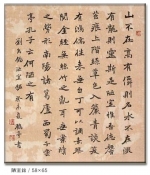 山不在高有仙則名水不在深
有龍則靈斯是陋室惟吾德
馨苔痕上階綠草色入簾青談笑
有鴻儒往來無白丁可以調素琴
閱金經無絲竹之亂耳無案牘
之勞形南陽諸葛廬西蜀子雲
亭孔子云何陋之有
劉禹錫陋室銘
陋室銘 / 58×65